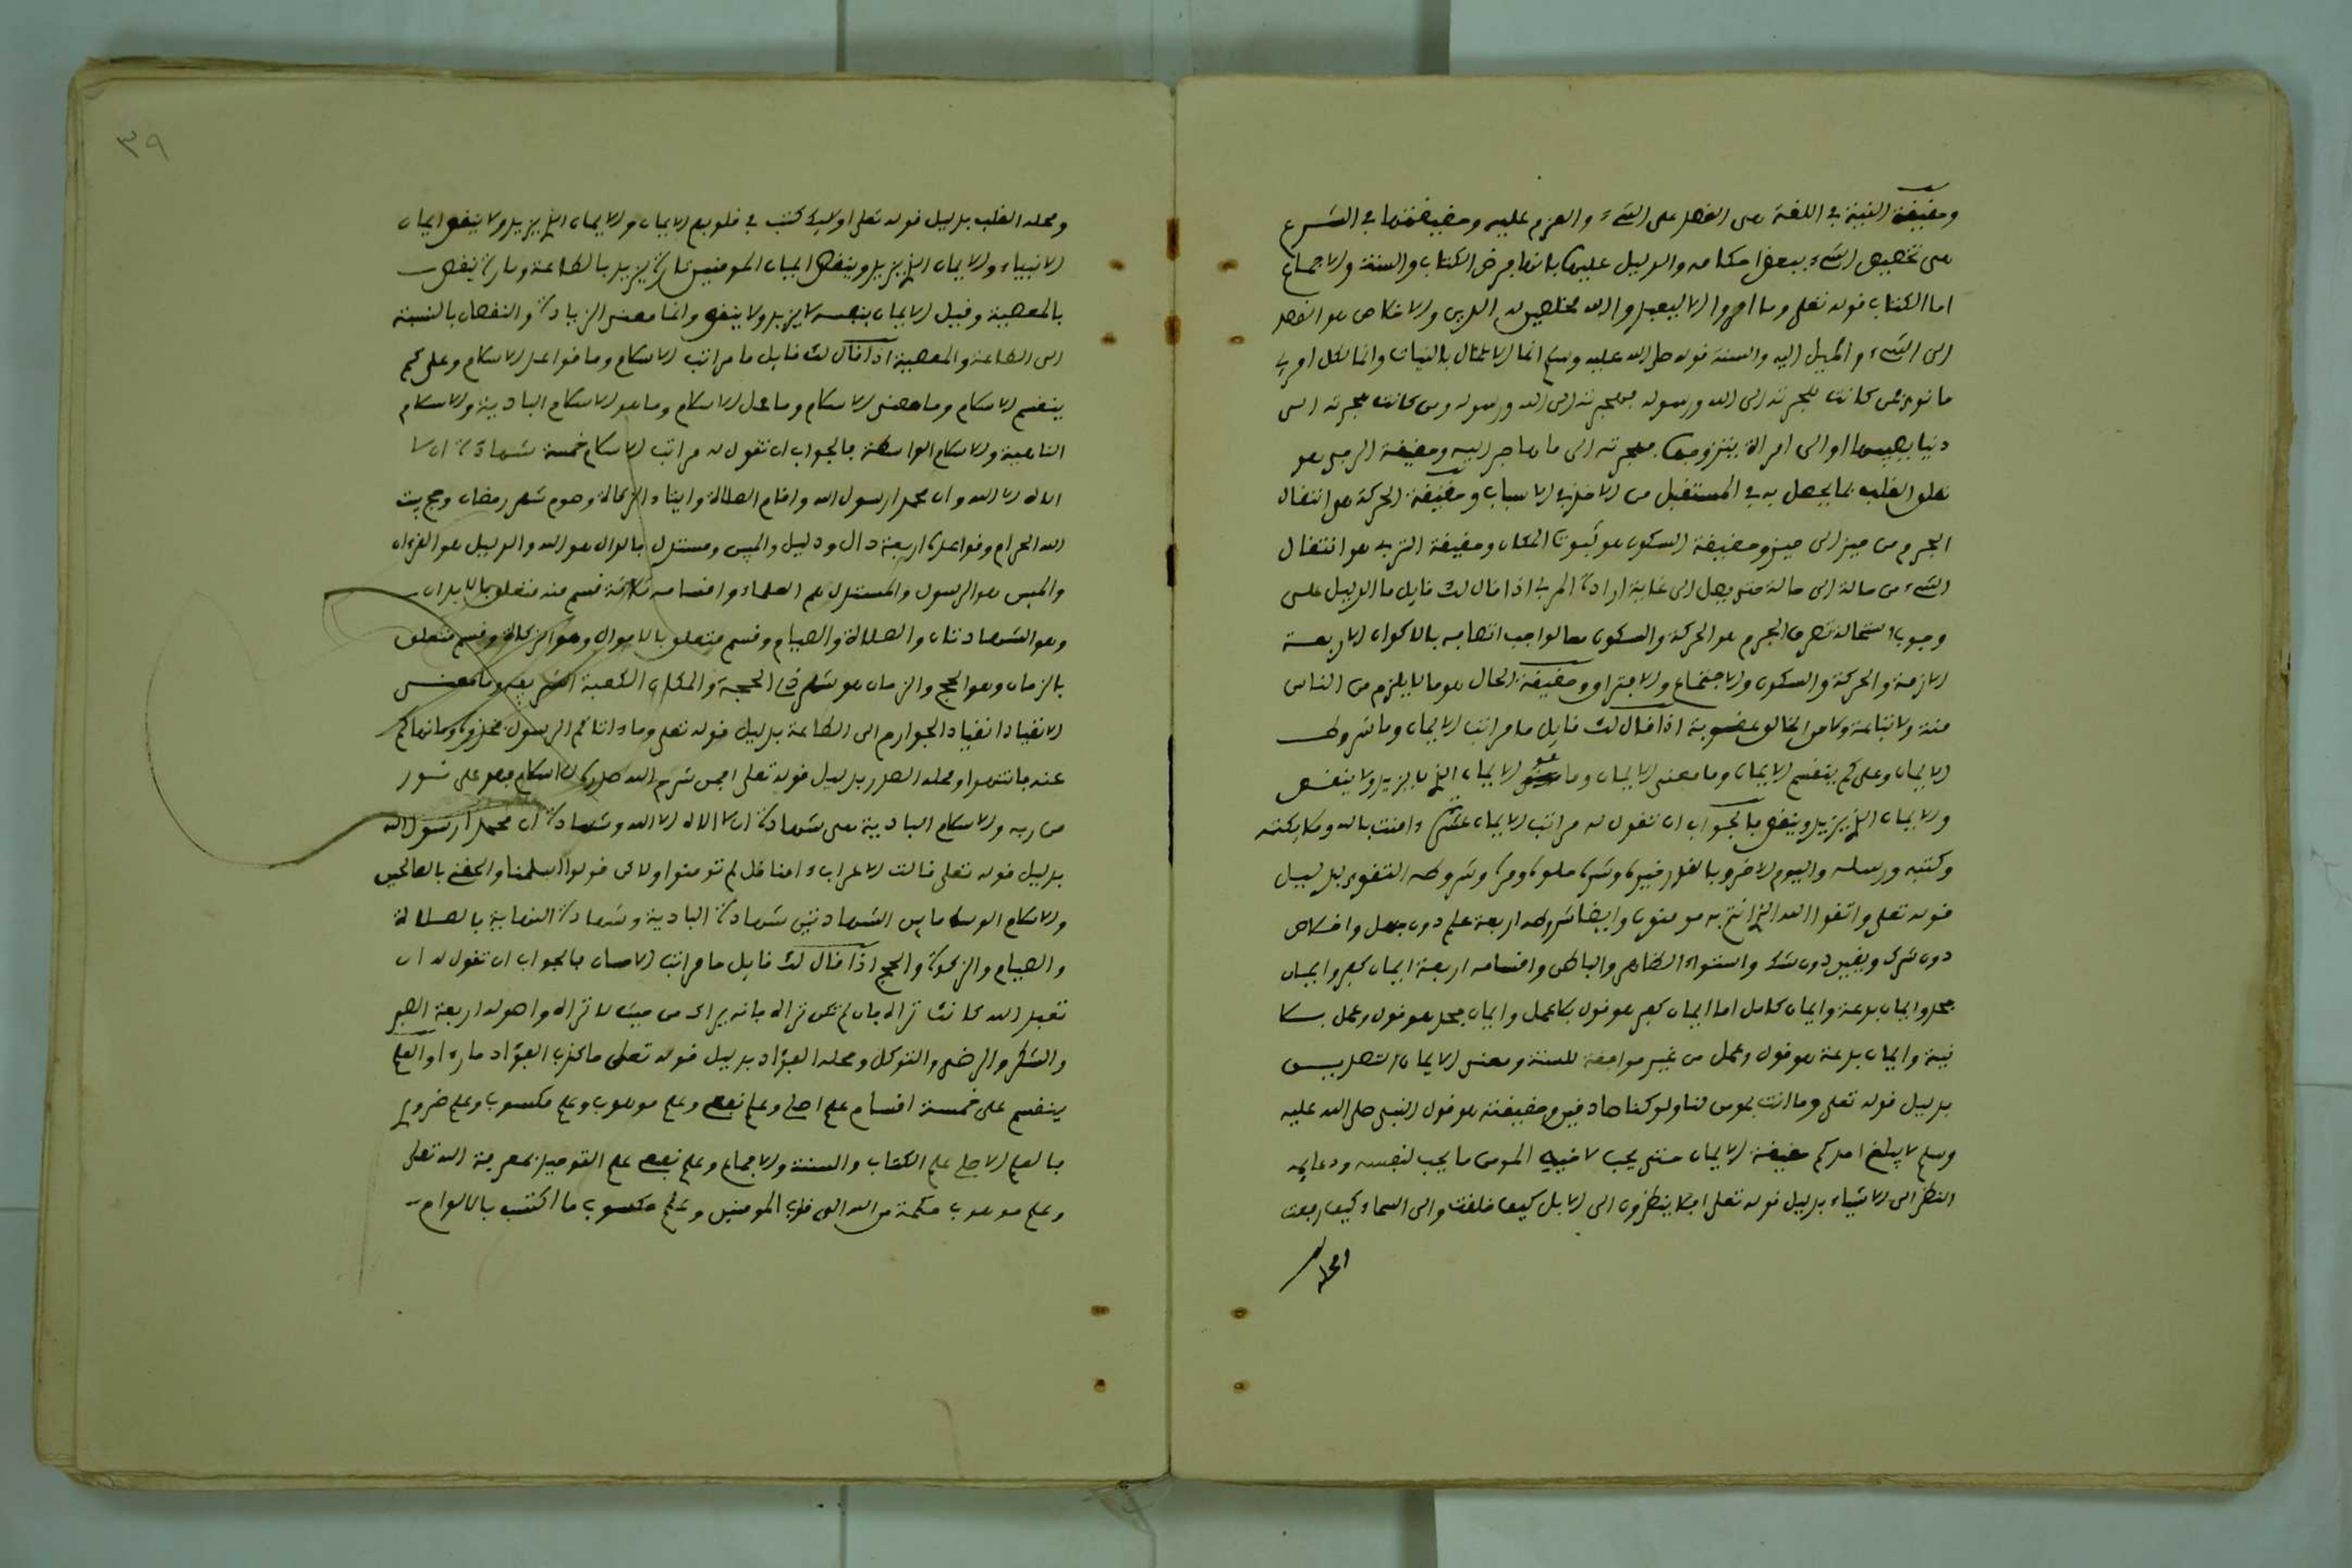 وحقيقة النية في اللغة هى القصد على الشيء والعزم عليه وحقيقتها في الشرع
هى تخصيص الشيء ببعض احكامه والدليل عليها بانها فرض الكتاب والسنة والاجماع
اما الكتاب قوله تعلى وما امروا الا ليعبدوا الله مخلصين له الدين والاخلاص هو القصد
الى الشيء والميل اليه والسنة قوله صلى الله عليه وسلم انما الاعمال بالنيات وانما لكل امرئ
ما نوى فمن كانت هجرته الى الله ورسوله فهجرته الى الله ورسوله ومن كانت هجرته الى
دنيا يصيبها او الى امراة يتزوجها فهجرته الى ما هاجر اليه وحقيقة الرجى هو
تعلق القلب بما يحصل به في المستقبل من الاخذ في الاسباب وحقيقة الحركة هو انتقال
الجرم من حيز الى حيز وحقيقة السكون هو ثبوت المكان وحقيقة التربية هو انتقال
الشيء من حالة الى حالة حتى يصل الى غاية ارادة المربي اذا قال لك قايل ما الدليل على
وجوب استحالة تعرى الجرم هو الحركة والسكون فالواجب اتصافه بالاكوان الاربعة
الازمة والحركة والسكون والاجتماع والافتراق وحقيقة الحال هو ما لا يلزم من الناس
منة ولا تباعة ولا من الخالق عقوبة اذا قال لك قايل ما مراتب الايمان وما شروط
الايمان وعلى كم ينقسم الايمان وما معنى الايمان وما هو الايمان الذي لا يزيد ولا ينقص
والايمان الذي يزيد وينقص فالجواب ان تقول له مراتب الايمان عشرة ءامنت بالله وملايكته
وكتبه ورسله واليوم الاخر وبالقدر خيره وشره حلوه ومره وشروطه التقوى بدليل
قوله تعلى واتقوا الله الذي انتم به مومنون وايضا شروطه اربعة علم دون جهل واخلاص
دون شرك ويقين دون شك واستواء الظاهر والباطن واقسامه اربعة ايمان كفر وايمان
جحد وايمان بدعة وايمان كامل اما ايمان كفر هو قول بلا عمل وايمان جحد هو قول وعمل بلا
نية وايمان بدعة هو قول وعمل من غير موافقة للسنة ومعنى الايمان التصديق
بدليل قوله تعلى وما انت بمومن لنا ولو كنا صادقين وحقيقته هو قول النبى صلى الله عليه
وسلم لا يبلغ احدكم حقيقة الايمان حتى يحب لاخيه المومن ما يحب لنفسه ودعايمه
النظر الى الاشياء بدليل قوله تعلى افلا ينظرون الى الابل كيف خلقت والى السماء كيف رفعت
ومحله
٣٩
ومحله القلب بدليل قوله تعلى اولايك كتب في قلوبهم الايمان والايمان الذي يزيد ولا ينقص ايمان
الانبياء والايمان الذي يزيد وينقص ايمان المومنين تارة يزيد بالطاعة وتارة ينقص
بالمعصية وقيل الايمان بنفسه لا يزيد ولا ينقص وانما معنى الزيادة والنقصان بالنسبة
الى الطاعة والمعصية اذا قال لك قايل ما مراتب الاسلام وما قواعد الاسلام وعلى كم
ينقسم الاسلام وما معنى الاسلام وما محل الاسلام وما هو الاسلام البادية والاسلام
الناهية والاسلام الواسطة فالجواب ان تقول له مراتب الاسلام خمسة شهادة ان لا
اله الا الله وان محمدا رسول الله واقام الصلاة وايتاء الزكاة وصوم شهر رمضان وحج بيت
الله الحرام وقواعده اربعة دال ودليل والمبين ومستدل فالدال هو الله والدليل هو القرءان
والمبين هو الرسول والمستدل هم العلماء واقسامه ثلاثة قسم منه متعلق بالابدان
وهو الشهادتان والصلاة والصيام وقسم متعلق بالاموال وهو الزكاة وقسم متعلق
بالزمان وهو الحج والزمان هو شهر ذي الحجة والمكان الكعبة الشريفة وما معنى
الانقياد انقياد الجوارح الى الطاعة بدليل قوله تعلى وما ءاتاكم الرسول فخذوه وما نهاكم
عنه فانتهوا ومحله الصدر بدليل قوله تعلى افمن شرح الله صدره للاسلام فهو على نور
من ربه والاسلام البادية هى شهادة ان لا اله الا الله وشهادة ان محمدا رسول الله
بدليل قوله تعلى قالت الاعراب ءامنا قل لم تومنوا ولاكن قولوا اسلمنا والحقني بالصالحين
والاسلام الوسط ما بين الشهادتين شهادة البادية وشهادة النهاية فالصلاة
والصيام والزكوة والحج اذا قال لك قايل ما مراتب الاحسان فالجواب ان تقول له ان
تعبد الله كانك تراه فان لم تكن تراه فانه يراك من حيث لا تراه واصوله اربعة الصبر
والشكر والرضى والتوكل ومحله الفؤاد بدليل قوله تعلى ما كذب الفؤاد ما رءا والعلم
ينقسم على خمسة اقسام علم اصلي وعلم نفعي وعلم موهوب وعلم مكسوب وعلم ضروري
فالعلم الاصلي علم الكتاب والسنة والاجماع وعلم نفعي علم التوحيد بمعرفة الله تعلى
وعلم موهوب حكمة من الله الى قلوب المومنين وعلم مكسوب ما اكتسب بالالواح